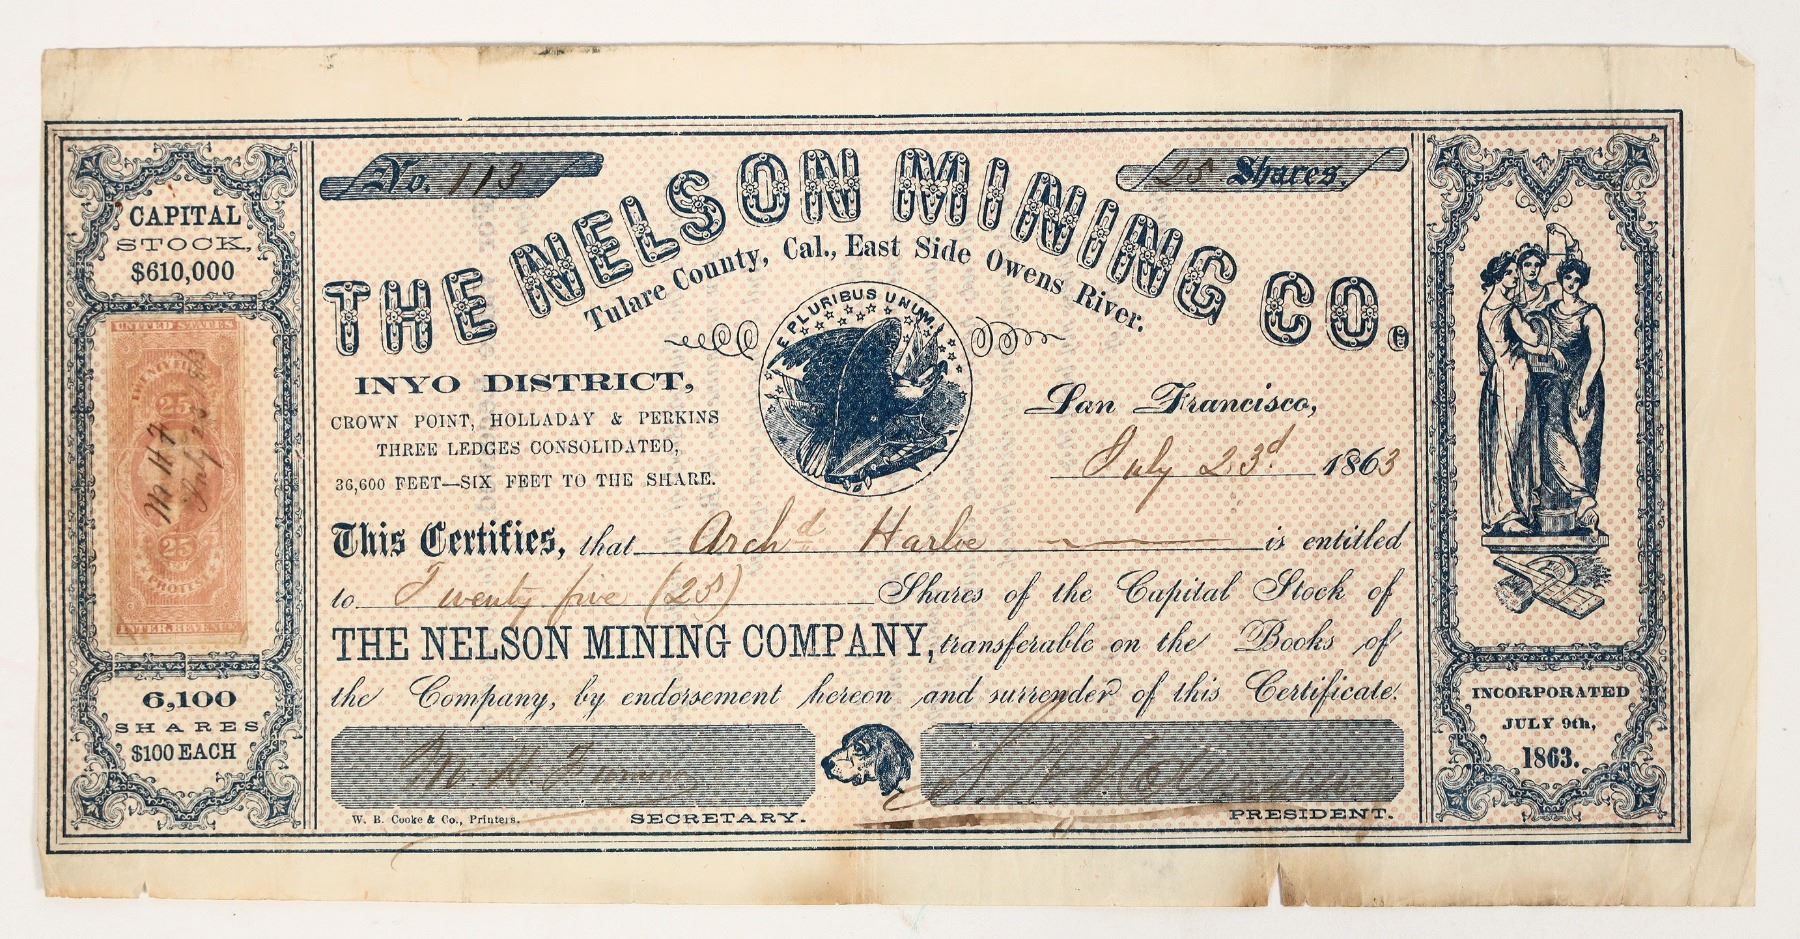 No. 113
25 Shares.
THE NELSON MINING CO.
Tulare County, Cal., East Side Owens River.
CAPITAL
STOCK,
$610,000
UNITED STATES
25
M H F
July 23 63
25
PROTEST
INTER. REVENUE
6,100
SHARES
$100 EACH
E PLURIBUS UNUM.
INYO DISTRICT,
CROWN POINT, HOLLADAY & PERKINS
THREE LEDGES CONSOLIDATED,
36,600 FEET—SIX FEET TO THE SHARE.
San Francisco,
July 23d 1863
This Certifies, that Archd Harloe is entitled
to Twenty five (25) Shares of the Capital Stock of
THE NELSON MINING COMPANY, transferable on the Books of
the Company, by endorsement hereon and surrender of this Certificate.
M. H.
SECRETARY.
PRESIDENT.
W. B. Cooke & Co., Printers.
INCORPORATED
JULY 9th,
1863.